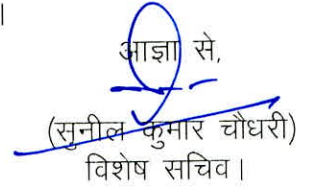 ।
आज्ञा से,
(सुनील कुमार चौधरी)
विशेष सचिव।